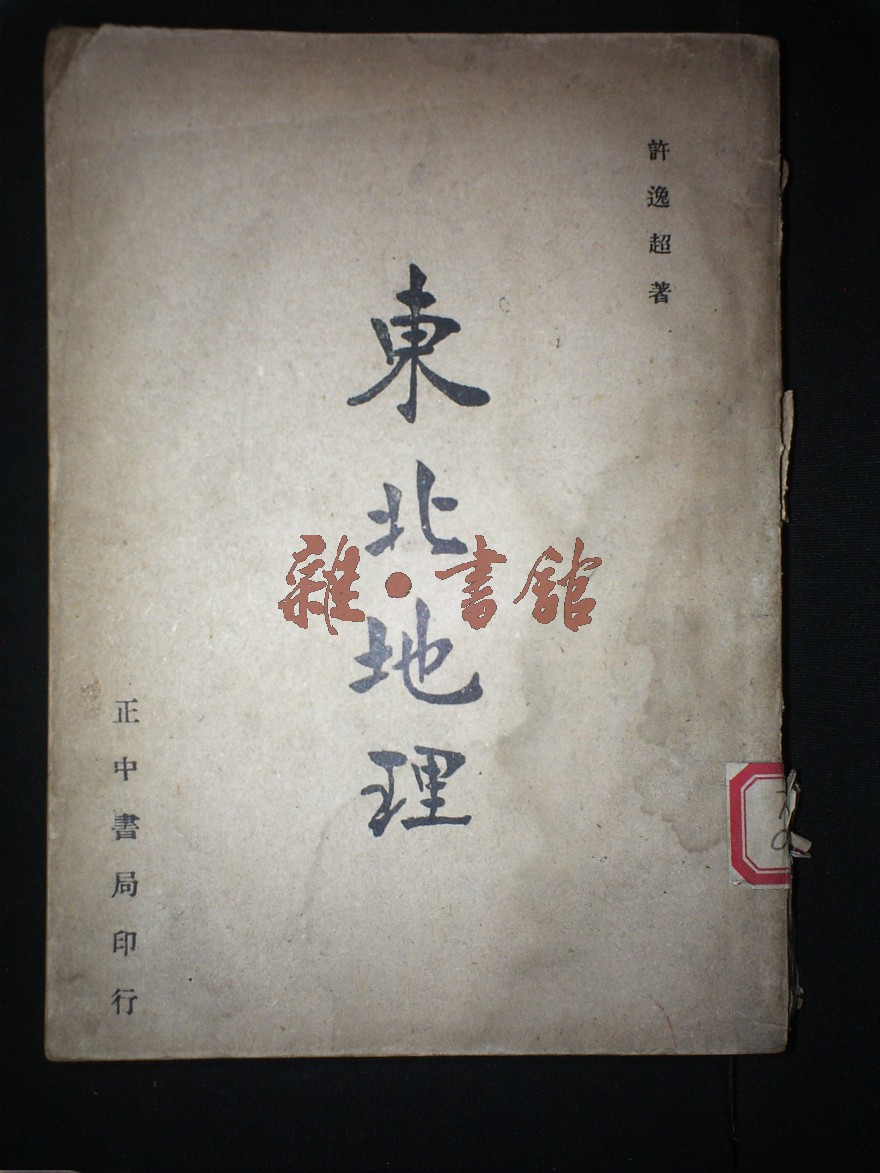 許逸超著
東北地理
雜·書館
正中書局印行